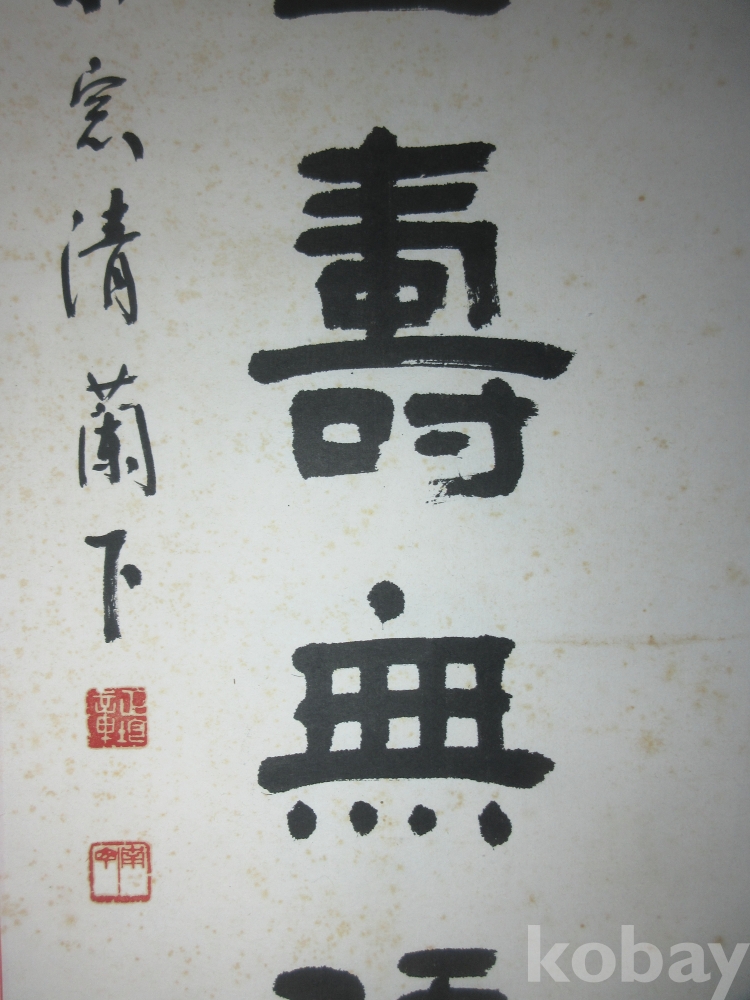 壽無
窓清蘭下
kobay